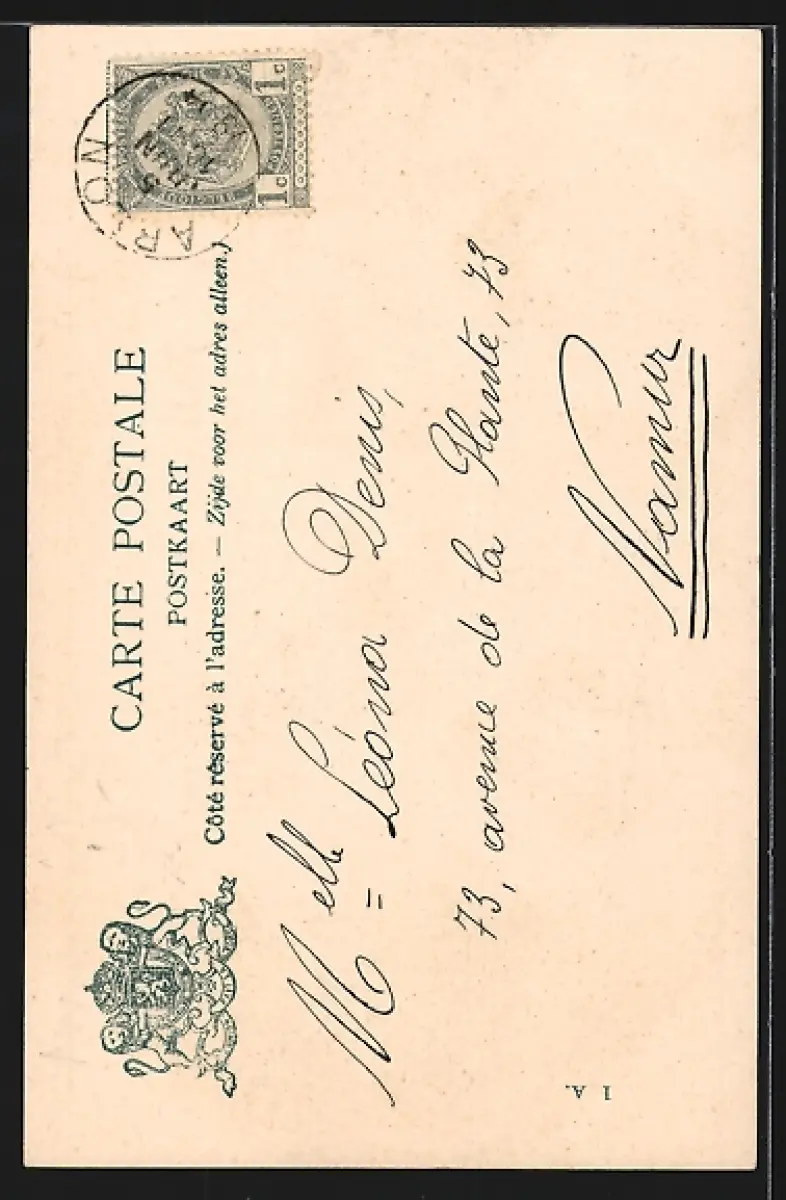 CARTE POSTALE
POSTKAART
Côté réservé à l'adresse. — Zijde voor het adres alleen.)
1c 1c
ARLON
Melle Léona Denis,
73, avenue de la Plante, 73
Namur
1 A.